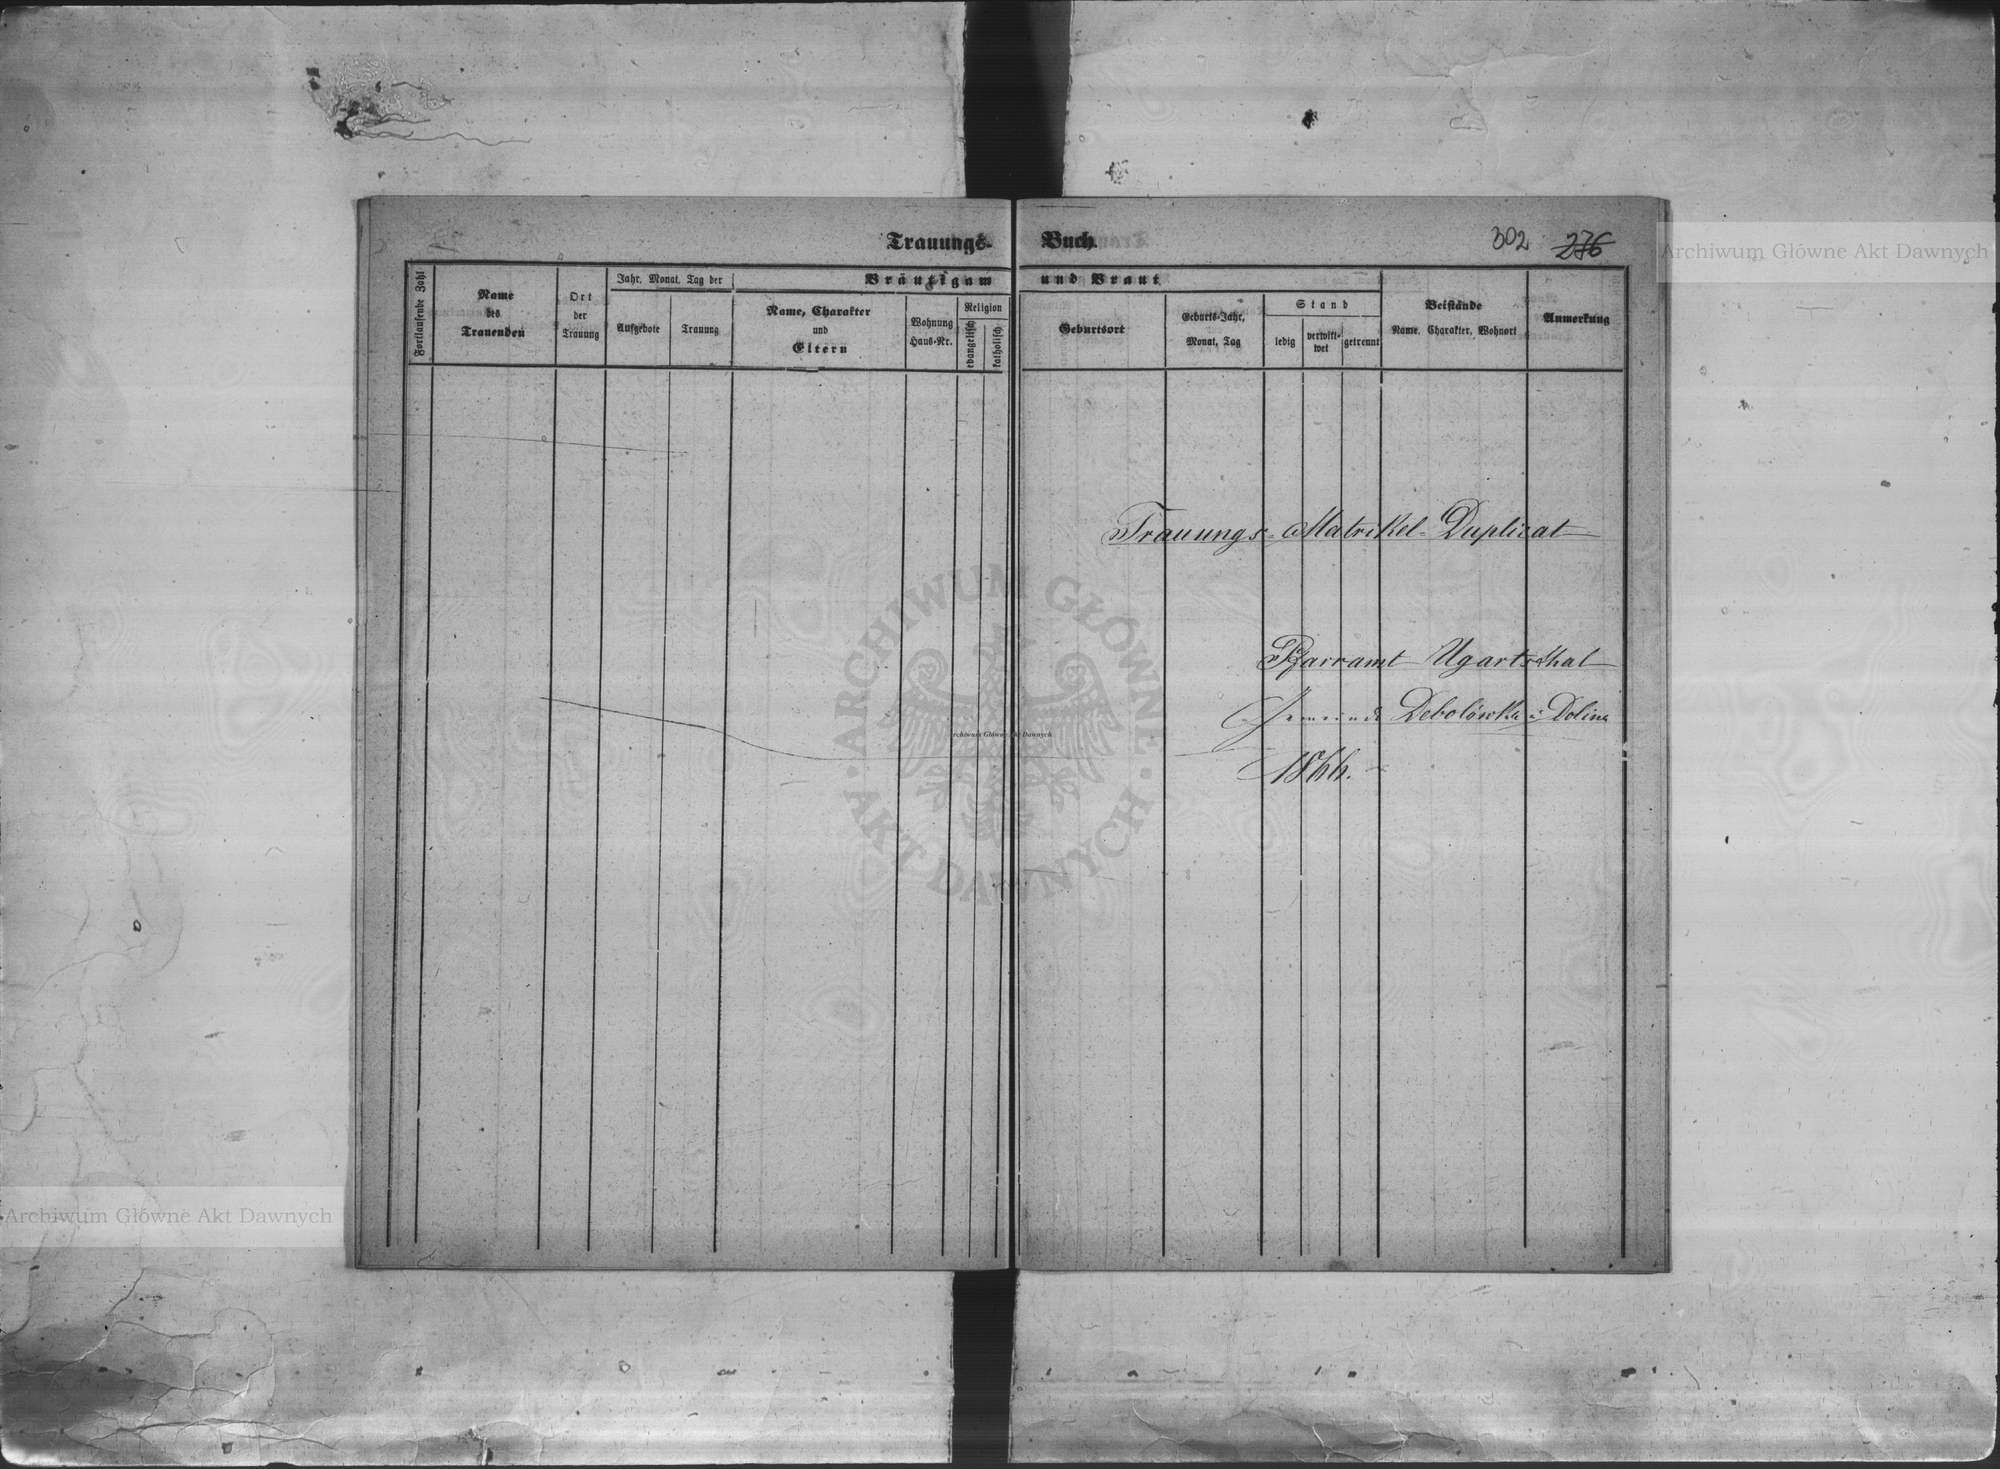 Trauungs-Buch.
302 276
Fortlaufende Zahl
Name
des
Trauenden
Ort
der
Trauung
Jahr, Monat, Tag der
Aufgebote
Trauung
Bräutigam und Braut
Name, Charakter
und
Eltern
Wohnung
Haus-Nr.
Religion
evangelisch
katholisch
Geburtsort
Geburts-Jahr,
Monat, Tag
Stand
ledig
verwitt-
wet
getrennt
Beistände
Name, Charakter, Wohnort
Anmerkung
Trauungs-Matrikel-Duplicat
Pfarramt Ugartsthal
Gemeinde Debolówka i Dolina
1866.
ARCHIWUM GŁÓWNE
AKT DAWNYCH
Archiwum Główne Akt Dawnych
Archiwum Główne Akt Dawnych
Archiwum Główne Akt Dawnych